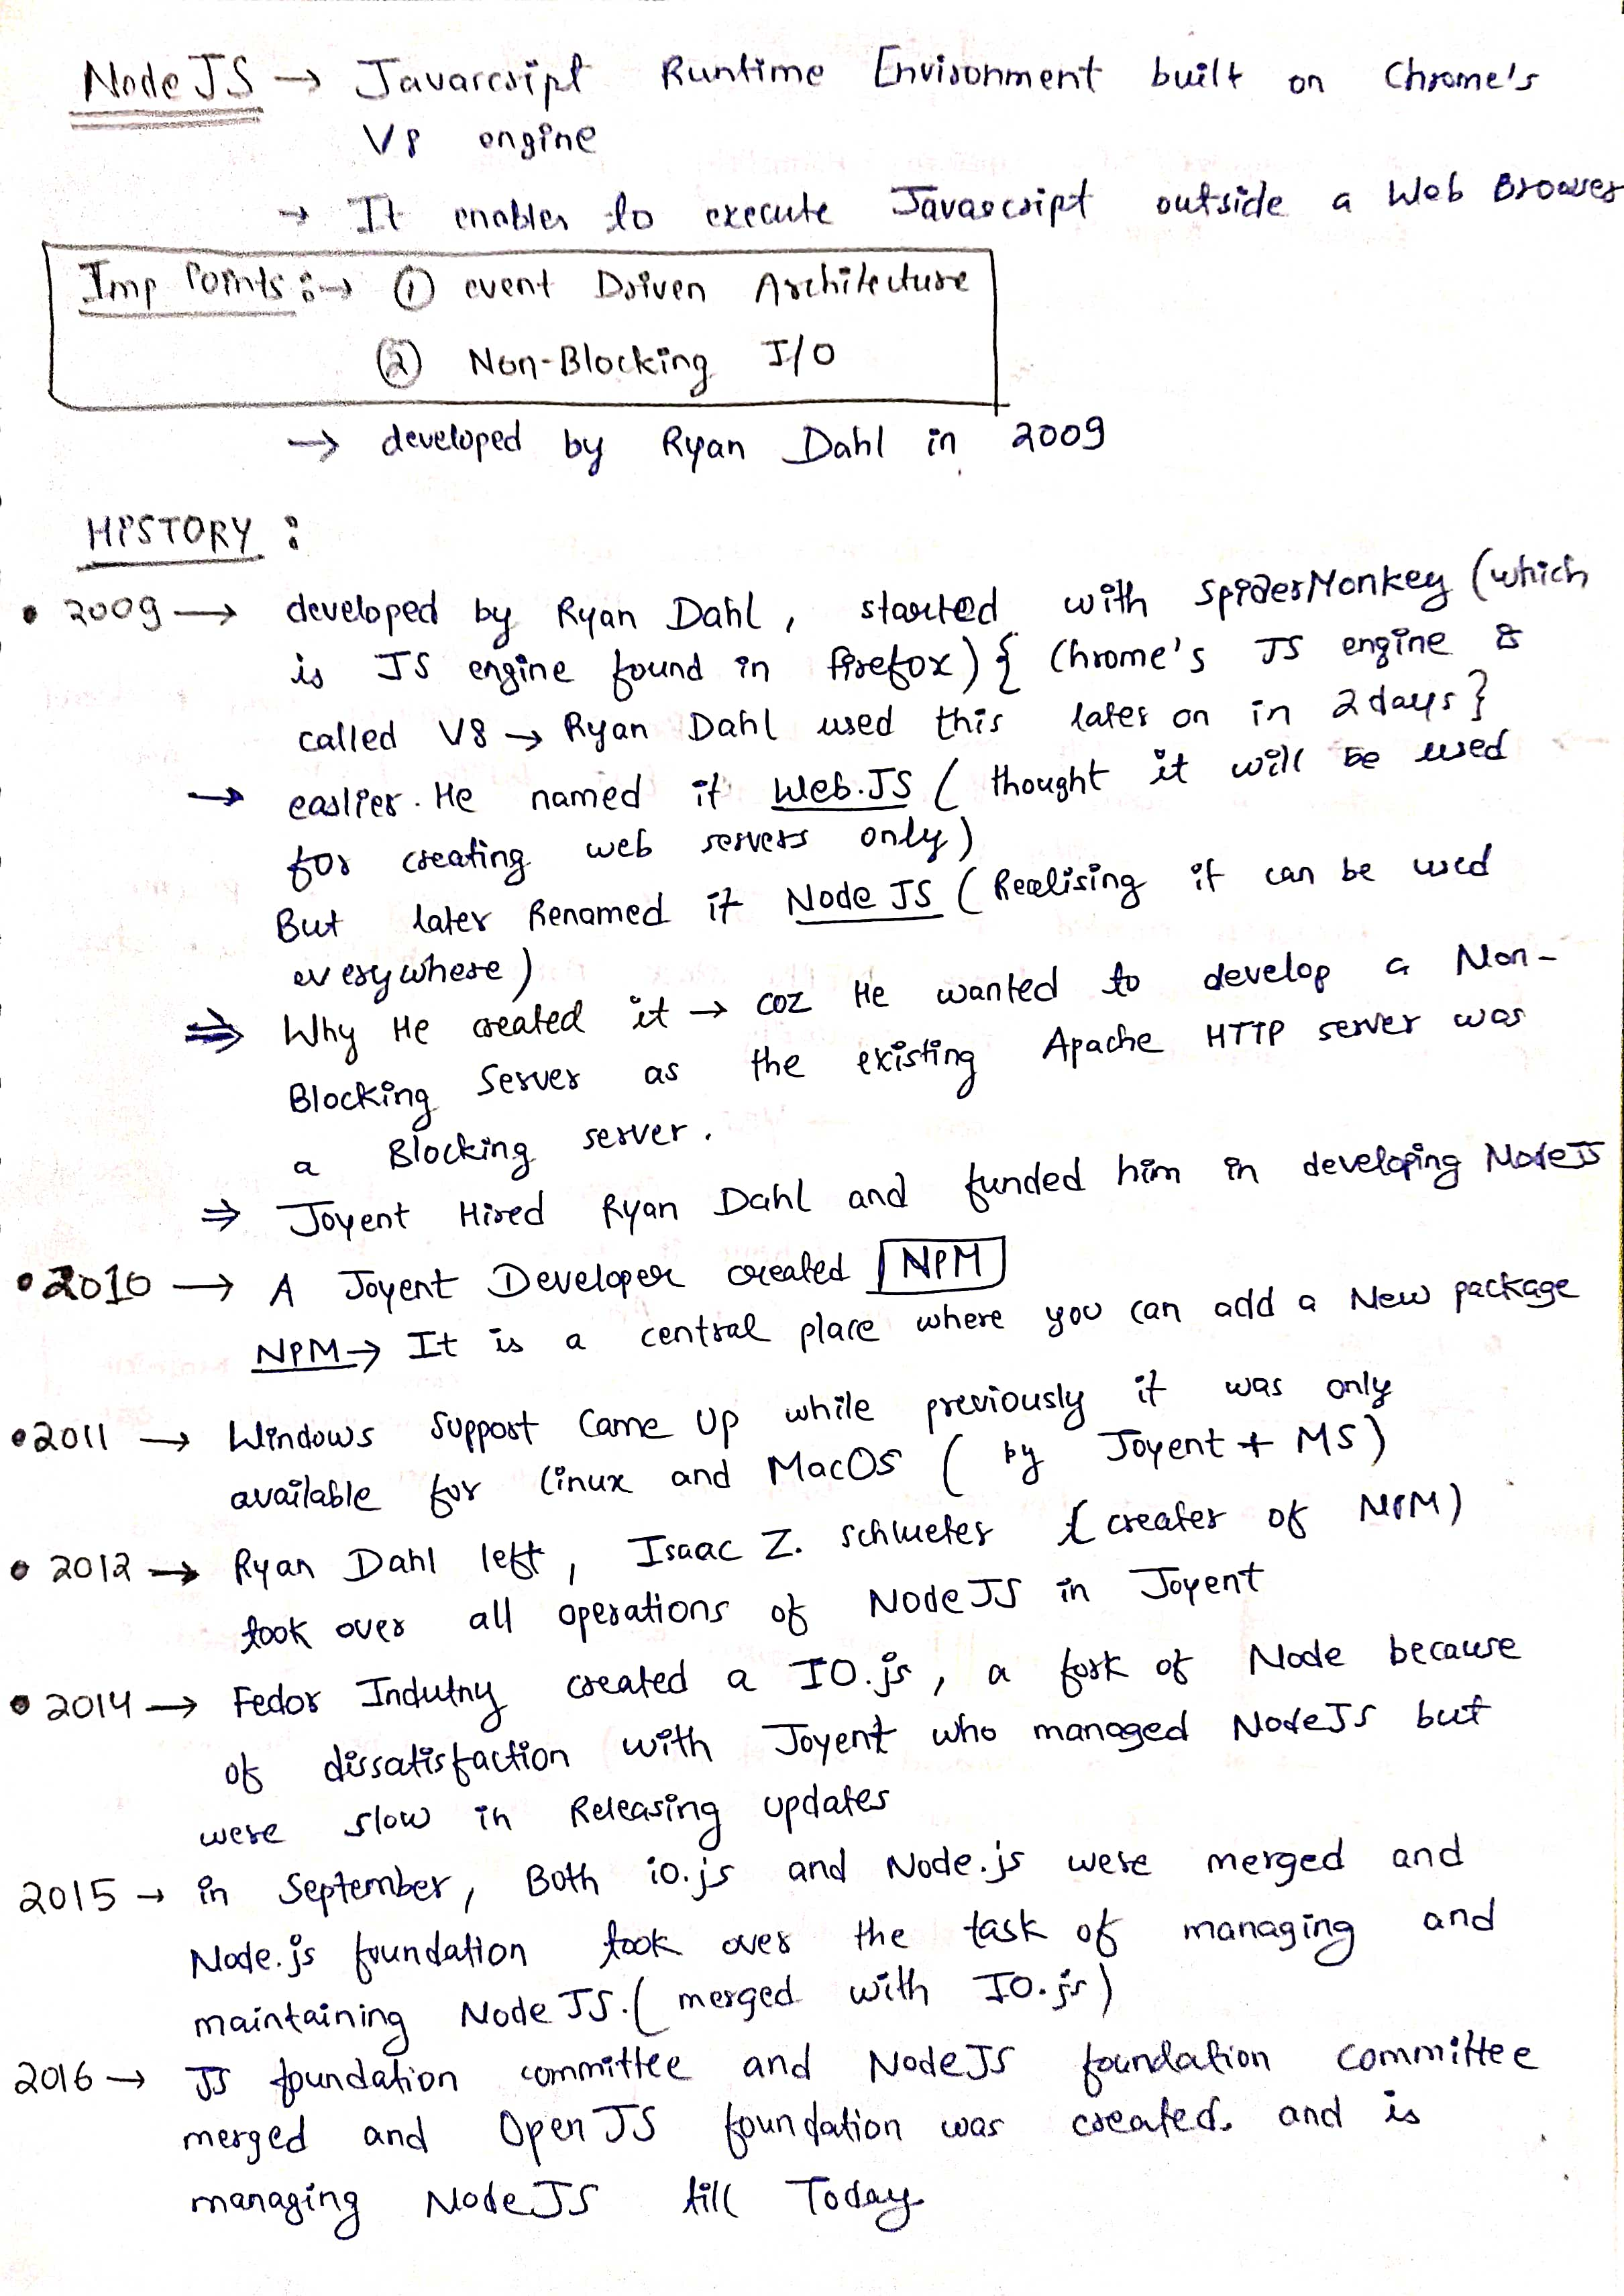 NodeJS → Javascript Runtime Environment built on Chrome's
V8 engine
→ It enables to execute Javascript outside a Web Browser
Imp Points :→ ① event Driven Architecture
② Non-Blocking I/O
→ developed by Ryan Dahl in 2009
HISTORY :
• 2009 → developed by Ryan Dahl, started with SpiderMonkey (which
is JS engine found in firefox) { Chrome's JS engine is
called V8 → Ryan Dahl used this later on in 2 days }
→ earlier. He named it Web.JS ( thought it will be used
for creating web servers only)
But later Renamed it Node JS ( Realising it can be used
everywhere )
⇒ Why He created it → coz He wanted to develop a Non-
Blocking Server as the existing Apache HTTP server was
a Blocking server.
⇒ Joyent Hired Ryan Dahl and funded him in developing NodeJS
• 2010 → A Joyent Developer created NPM
NPM → It is a central place where you can add a New package
• 2011 → Windows support Came Up while previously it was only
available for linux and MacOS ( by Joyent + MS )
• 2012 → Ryan Dahl left, Isaac Z. schlueter ( creater of NPM )
took over all operations of NodeJS in Joyent
• 2014 → Fedor Indutny created a IO.js, a fork of Node because
of dissatisfaction with Joyent who managed NodeJS but
were slow in Releasing updates
2015 → in September, Both io.js and Node.js were merged and
Node.js foundation took over the task of managing and
maintaining NodeJS. ( merged with IO.js )
2016 → JS foundation committee and NodeJS foundation committee
merged and OpenJS foundation was created. and is
managing NodeJS till Today